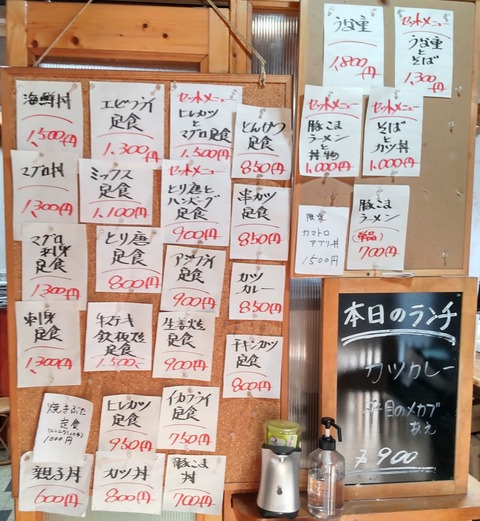 海鮮丼
1,500円
エビフライ
定食
1,300円
セットメニュー
ヒレカツ
と
マグロ定食
1,500円
とんかつ
定食
850円
マグロ丼
1,300円
ミックス
定食
1,100円
セットメニュー
とり唐と
ハンバーグ
定食
900円
串カツ
定食
850円
マグロ
刺身
定食
1,300円
とり唐
定食
800円
アジフライ
定食
900円
カツ
カレー
850円
刺身
定食
1,300円
牛ステーキ
鉄板焼
定食
1,500
生姜焼
定食
900円
チキンカツ
定食
800円
焼きぶた
定食
1000円
ヒレカツ
定食
950円
イカフライ
定食
750円
親子丼
600円
カツ丼
800円
豚こま
丼
700円
うな重
1,800円
セットメニュー
うな重
と
そば
1,300円
セットメニュー
豚こま
ラーメン
と
丼物
1,000円
セットメニュー
そば
と
カツ丼
1,000円
限定
カマトロ
アブリ丼
1500円
豚こま
ラーメン
(単品)
700円
本日のランチ
カツカレー
平目のメカブ
あえ
¥900